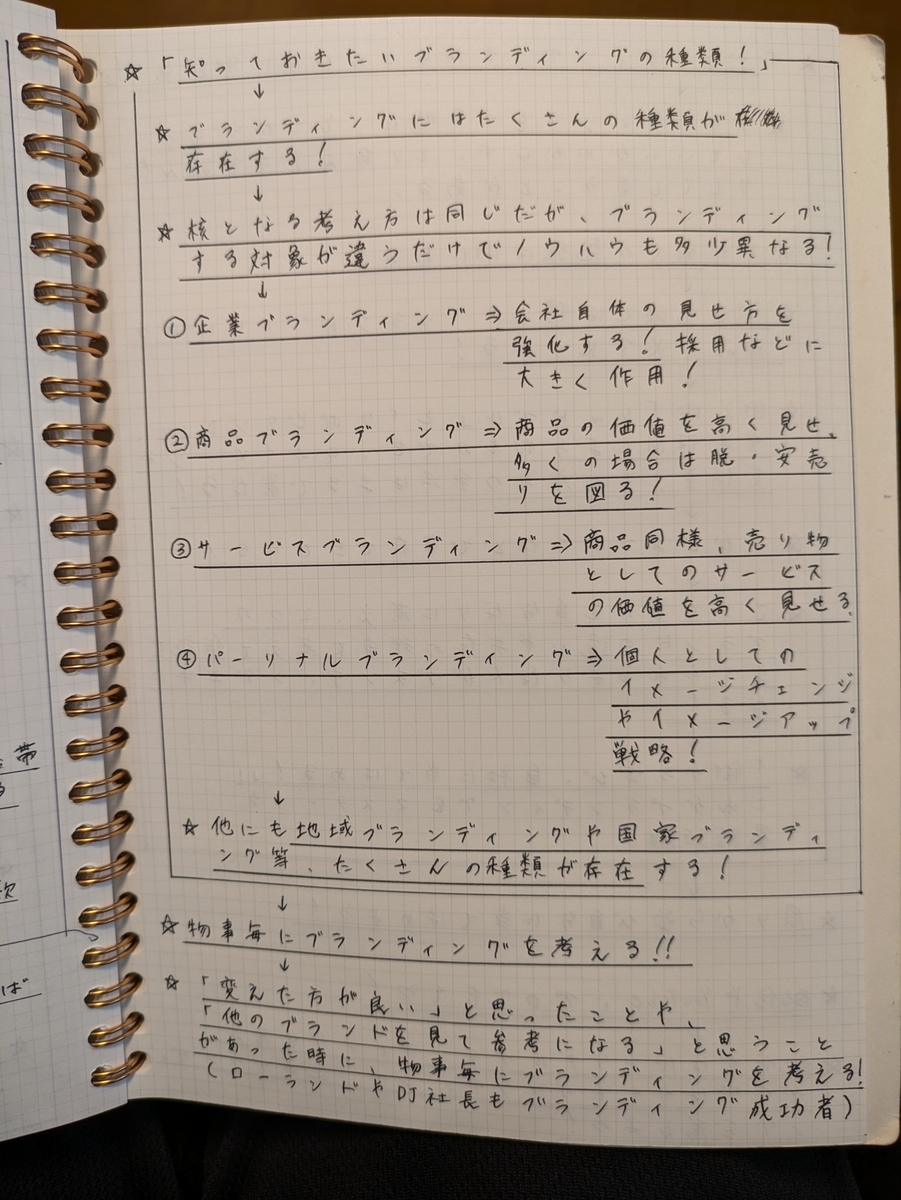 ☆「知っておきたいブランディングの種類!」
↓
☆ ブランディングにはたくさんの種類が
存在する!
↓
☆ 核となる考え方は同じだが、ブランディング
する対象が違うだけでノウハウも多少異なる!
↓
① 企業ブランディング ⇒ 会社自体の見せ方を
強化する! 採用などに
大きく作用!
② 商品ブランディング ⇒ 商品の価値を高く見せ、
多くの場合は脱・安売
りを図る!
③ サービスブランディング ⇒ 商品同様、売り物
としてのサービス
の価値を高く見せる
④ パーソナルブランディング ⇒ 個人としての
イメージチェンジ
やイメージアップ
戦略!
↓
☆ 他にも地域ブランディングや国家ブランディ
ング等、たくさんの種類が存在する!
↓
☆ 物事毎にブランディングを考える!!
↓
☆ 「変えた方が良い」と思ったことや、
「他のブランドを見て参考になる」と思うこと
があった時に、物事毎にブランディングを考える!
(ローランドやDJ社長もブランディング成功者)
帯
ば